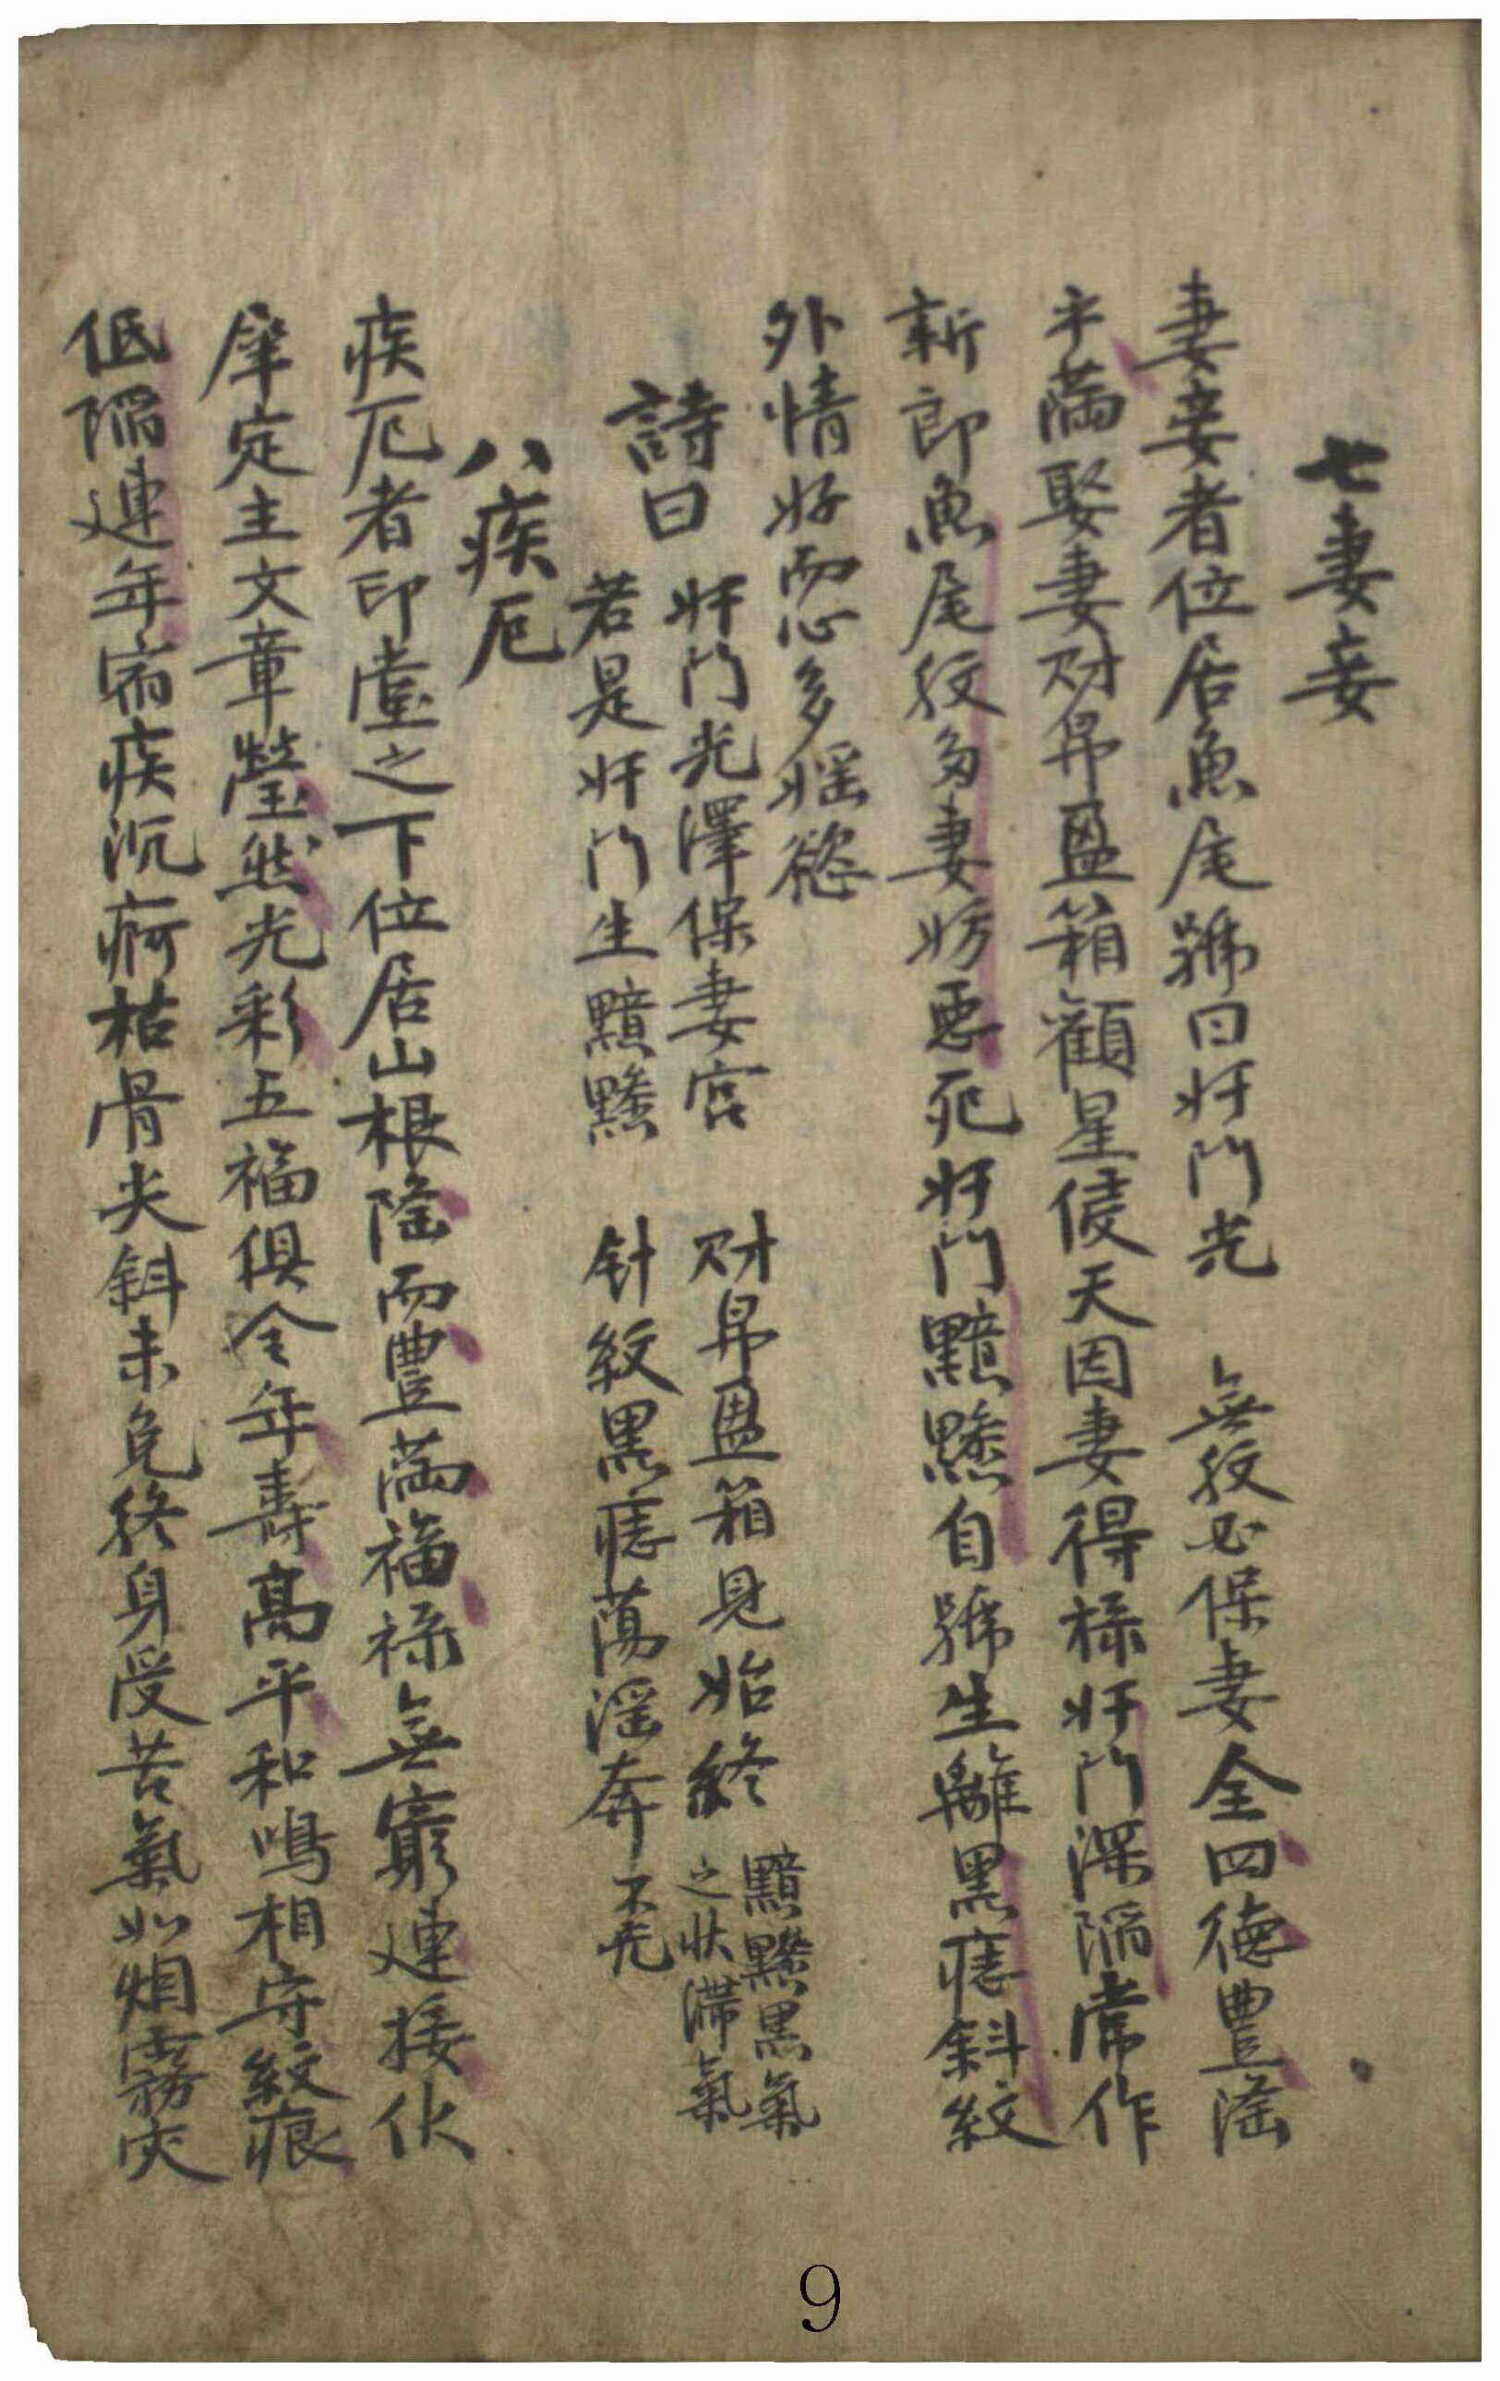 七妻妾
妻妾者位居魚尾號曰奸門光 無紋必保妻全四德豊隆
平滿娶妻財帛盈箱顴星侵天因妻得祿奸門深陷常作
新郎魚尾紋多妻妨惡死奸門黯黲自號生離黑痣斜紋
外情好而心多媱慾
詩曰
奸門光澤保妻宮 財帛盈箱見始終
黯黲黒氣
之狀滯氣
若是奸門生黯黲 針紋黑痣蕩滛奔 不光
八疾厄
疾厄者印堂之下位居山根隆而豊滿福祿無窮連接伏
犀定主文章瑩然光彩五福俱全年壽高平和鳴相守紋痕
低陷連年宿疾沉疴枯骨尖斜未免終身受苦氣如烟霧災
9